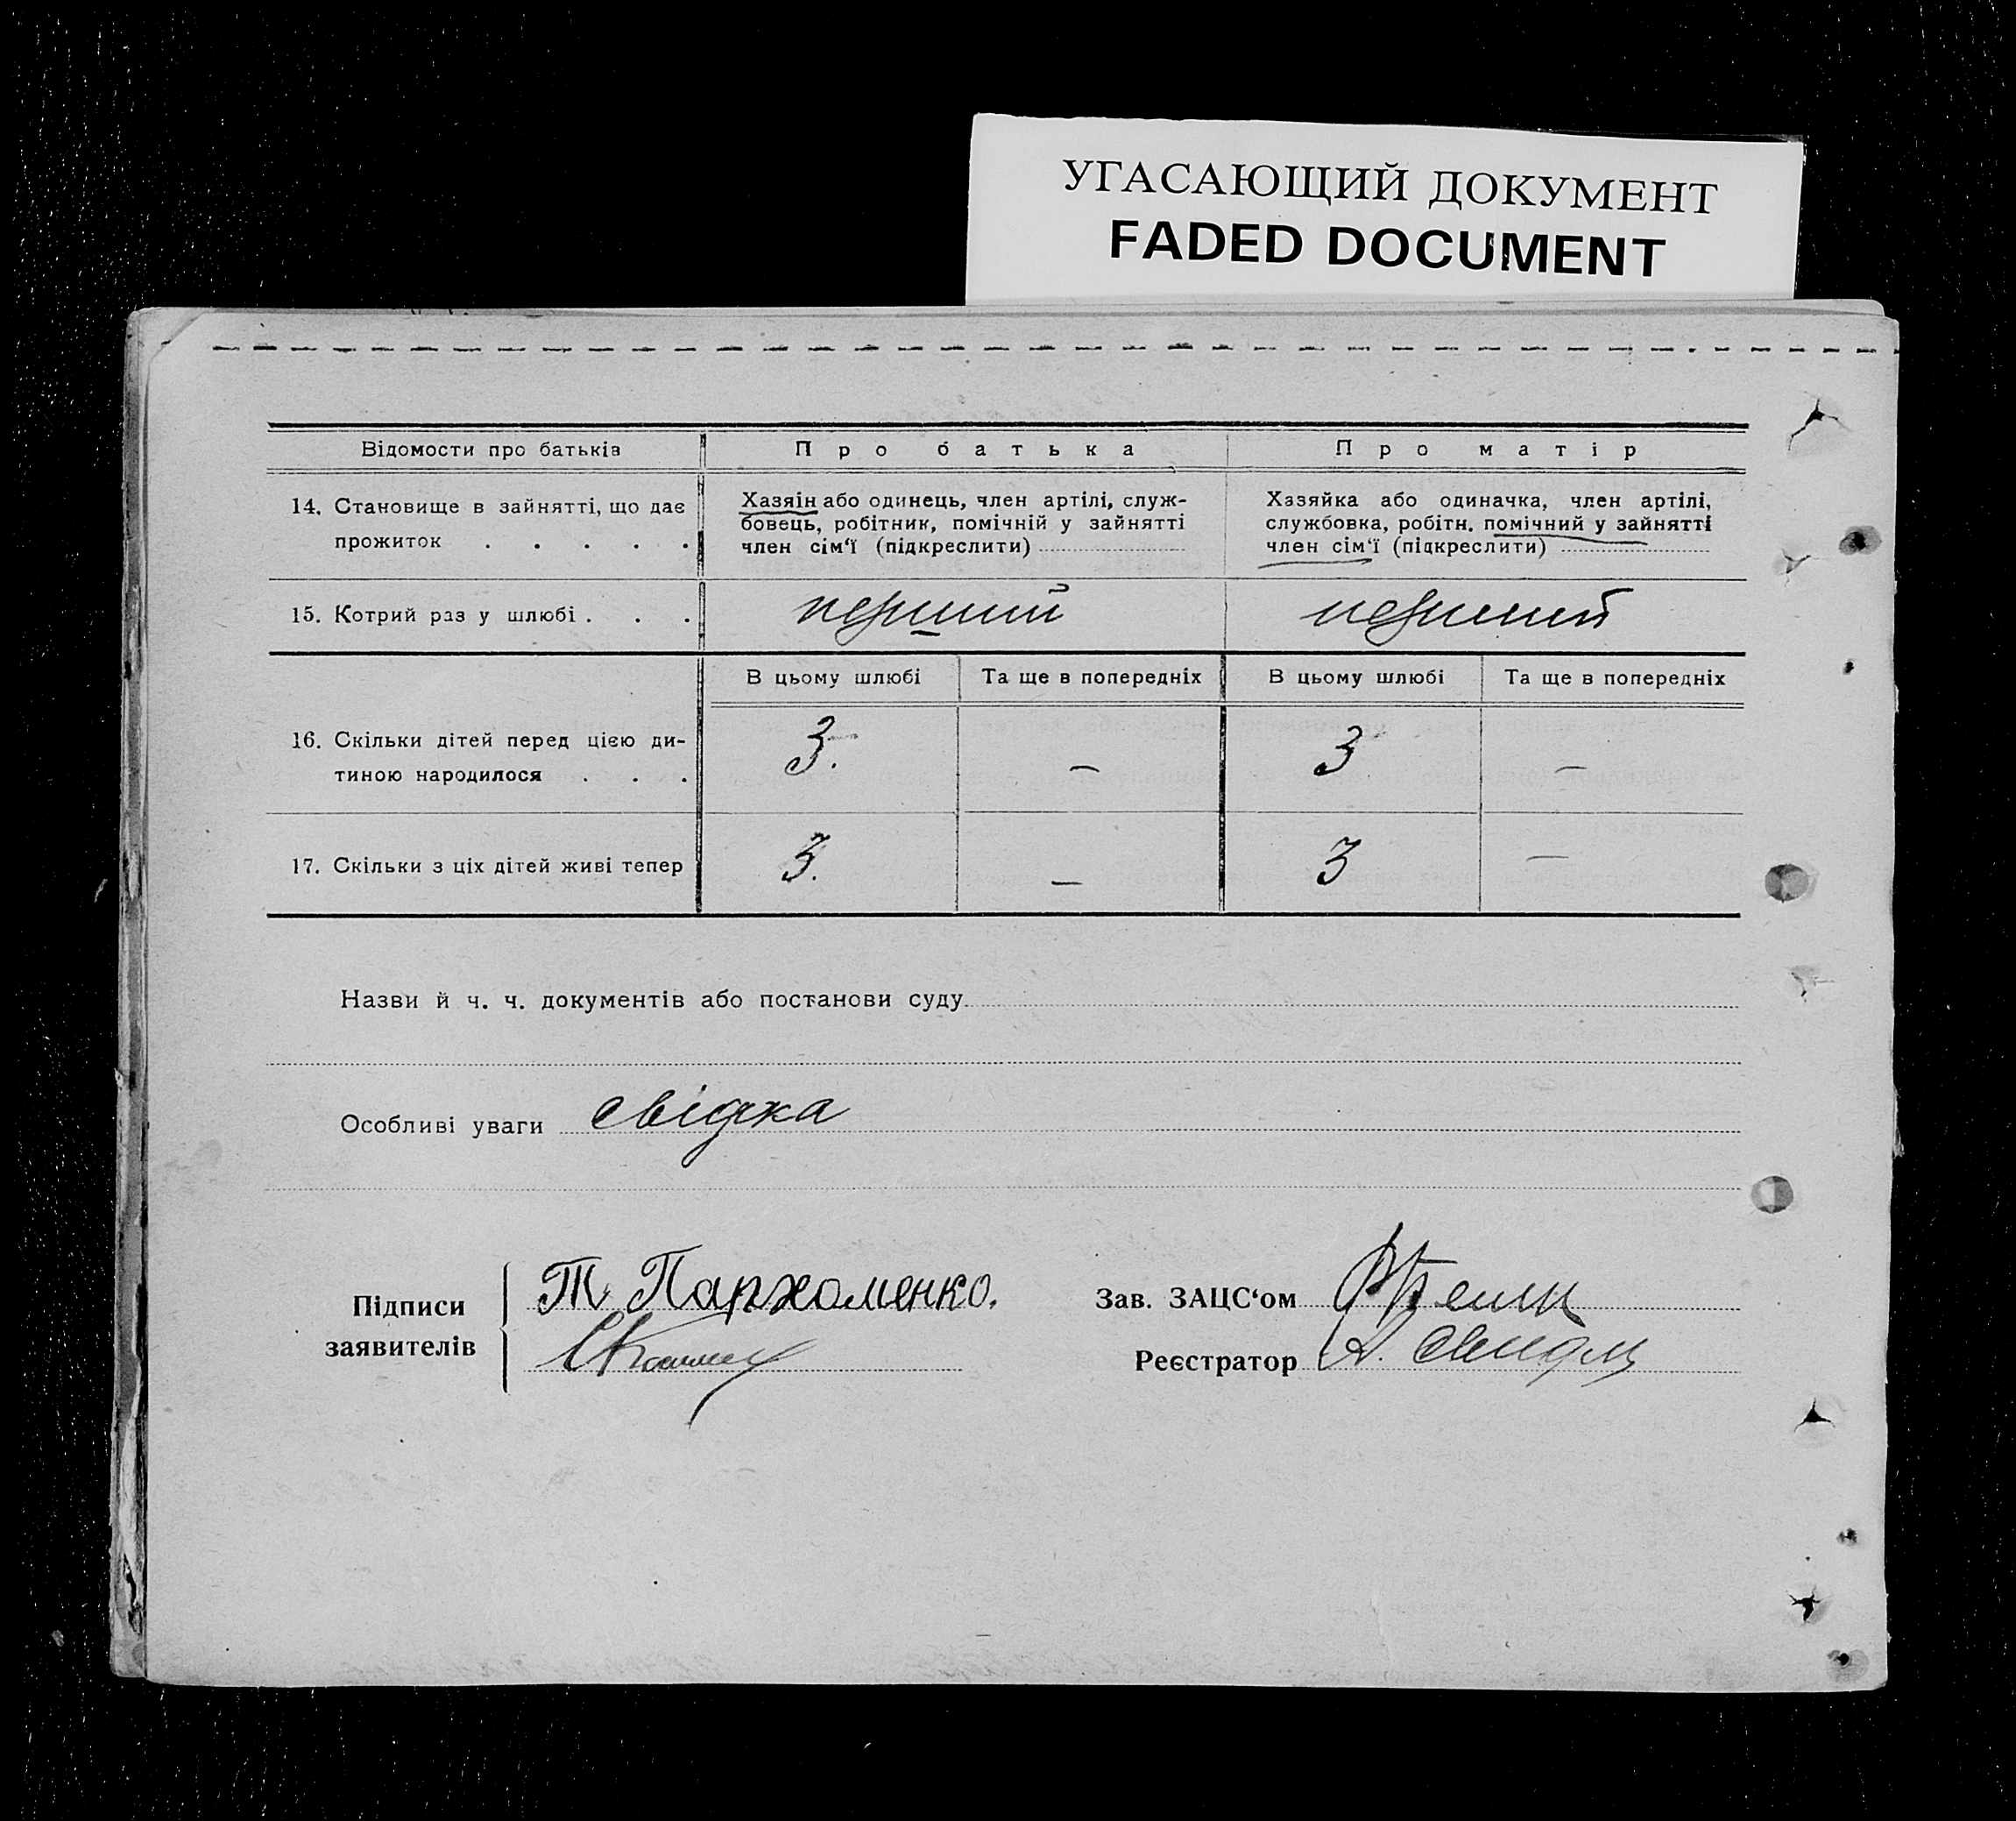 УГАСАЮЩИЙ ДОКУМЕНТ
FADED DOCUMENT
Відомости про батьків
Про батька
Про матір
14. Становище в зайнятті, що дає
прожиток . . . . .
Хазяін або одинець, член артілі, служ-
бовець, робітник, помічній у зайнятті
член сім‘ї (підкреслити)
Хазяйка або одиначка, член артілі,
службовка, робітн. помічний у зайнятті
член сім‘ї (підкреслити)
15. Котрий раз у шлюбі . . .
перший
перший
В цьому шлюбі
Та ще в попередніх
В цьому шлюбі
Та ще в попередніх
16. Скільки дітей перед цією ди-
тиною народилося . . .
3.
—
3
—
17. Скільки з ціх дітей живі тепер
3.
—
3
—
Назви й ч. ч. документів або постанови суду
Особливі уваги свідка
Підписи
заявителів
Т Пархоменко.
Зав. ЗАЦС‘ом
Реєстратор